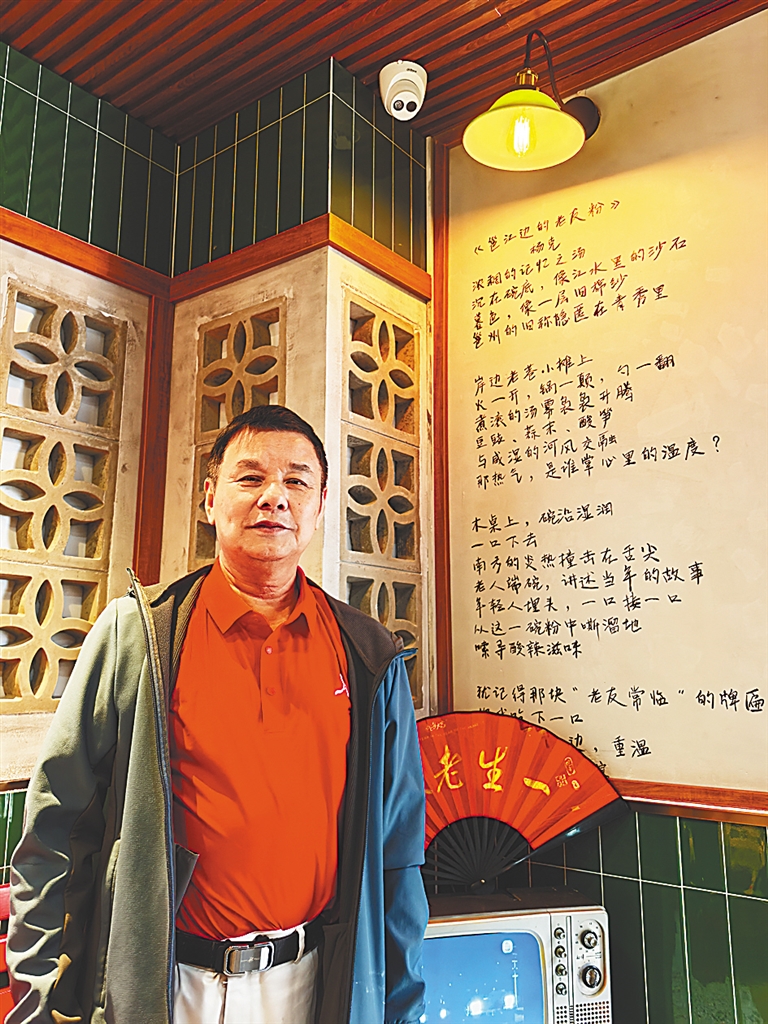 《邕江边的老友粉》
杨克
浓稠的记忆之汤
沉在碗底，像江水里的沙石
暮色，像一层旧棉纱
邕州的旧称隐匿在青秀里
岸边老巷小摊上
火一开，锅一颠，勺一翻
煮滚的汤雾袅袅升腾
豆豉、蒜末、酸笋
与咸湿的河风交融
那热气，是谁掌心里的温度？
木桌上，碗沿湿润
一口下去
南方的炎热撞击在舌尖
老人端碗，讲述当年的故事
年轻人埋头，一口接一口
从这一碗粉中嘶溜地
嗦导酸辣滋味
犹记得那块“老友常临”的牌匾
下一口
边，重温
一生老